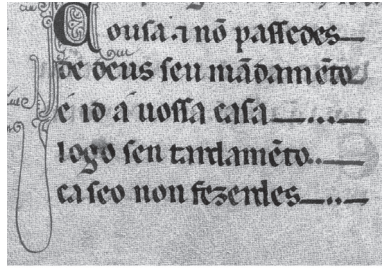 Couſa a nõ paſſedes
de deus ſeu mãdamẽto
e id a uoſſa caſa
logo ſen tardamẽto.
ca ſeo non fezerdes